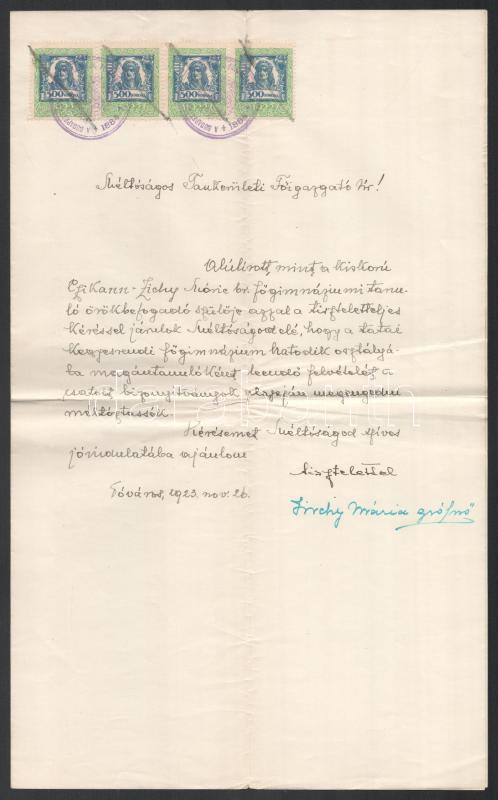 500 500 500 500
Méltóságos Tankerületi Főigazgató Úr!
Alulírott, mint a kiskorú
Czikann-Zichy Móric br. főgimnáziumi tanu-
ló örökbefogadó szülője azzal a tiszteletteljes
kéréssel járulok Méltóságod elé, hogy a tatai
kegyesrendi főgimnázium hatodik osztályá-
ba magántanulóként leendő felvételét a
csatolt bizonyítványok megengedni
méltóztassék.
Kérésemet Méltóságod szíves
jóindulatába ajánlom
tisztelettel
Tóváros, 1923. nov. 26.
Zichy Mária grófnő
darabanth